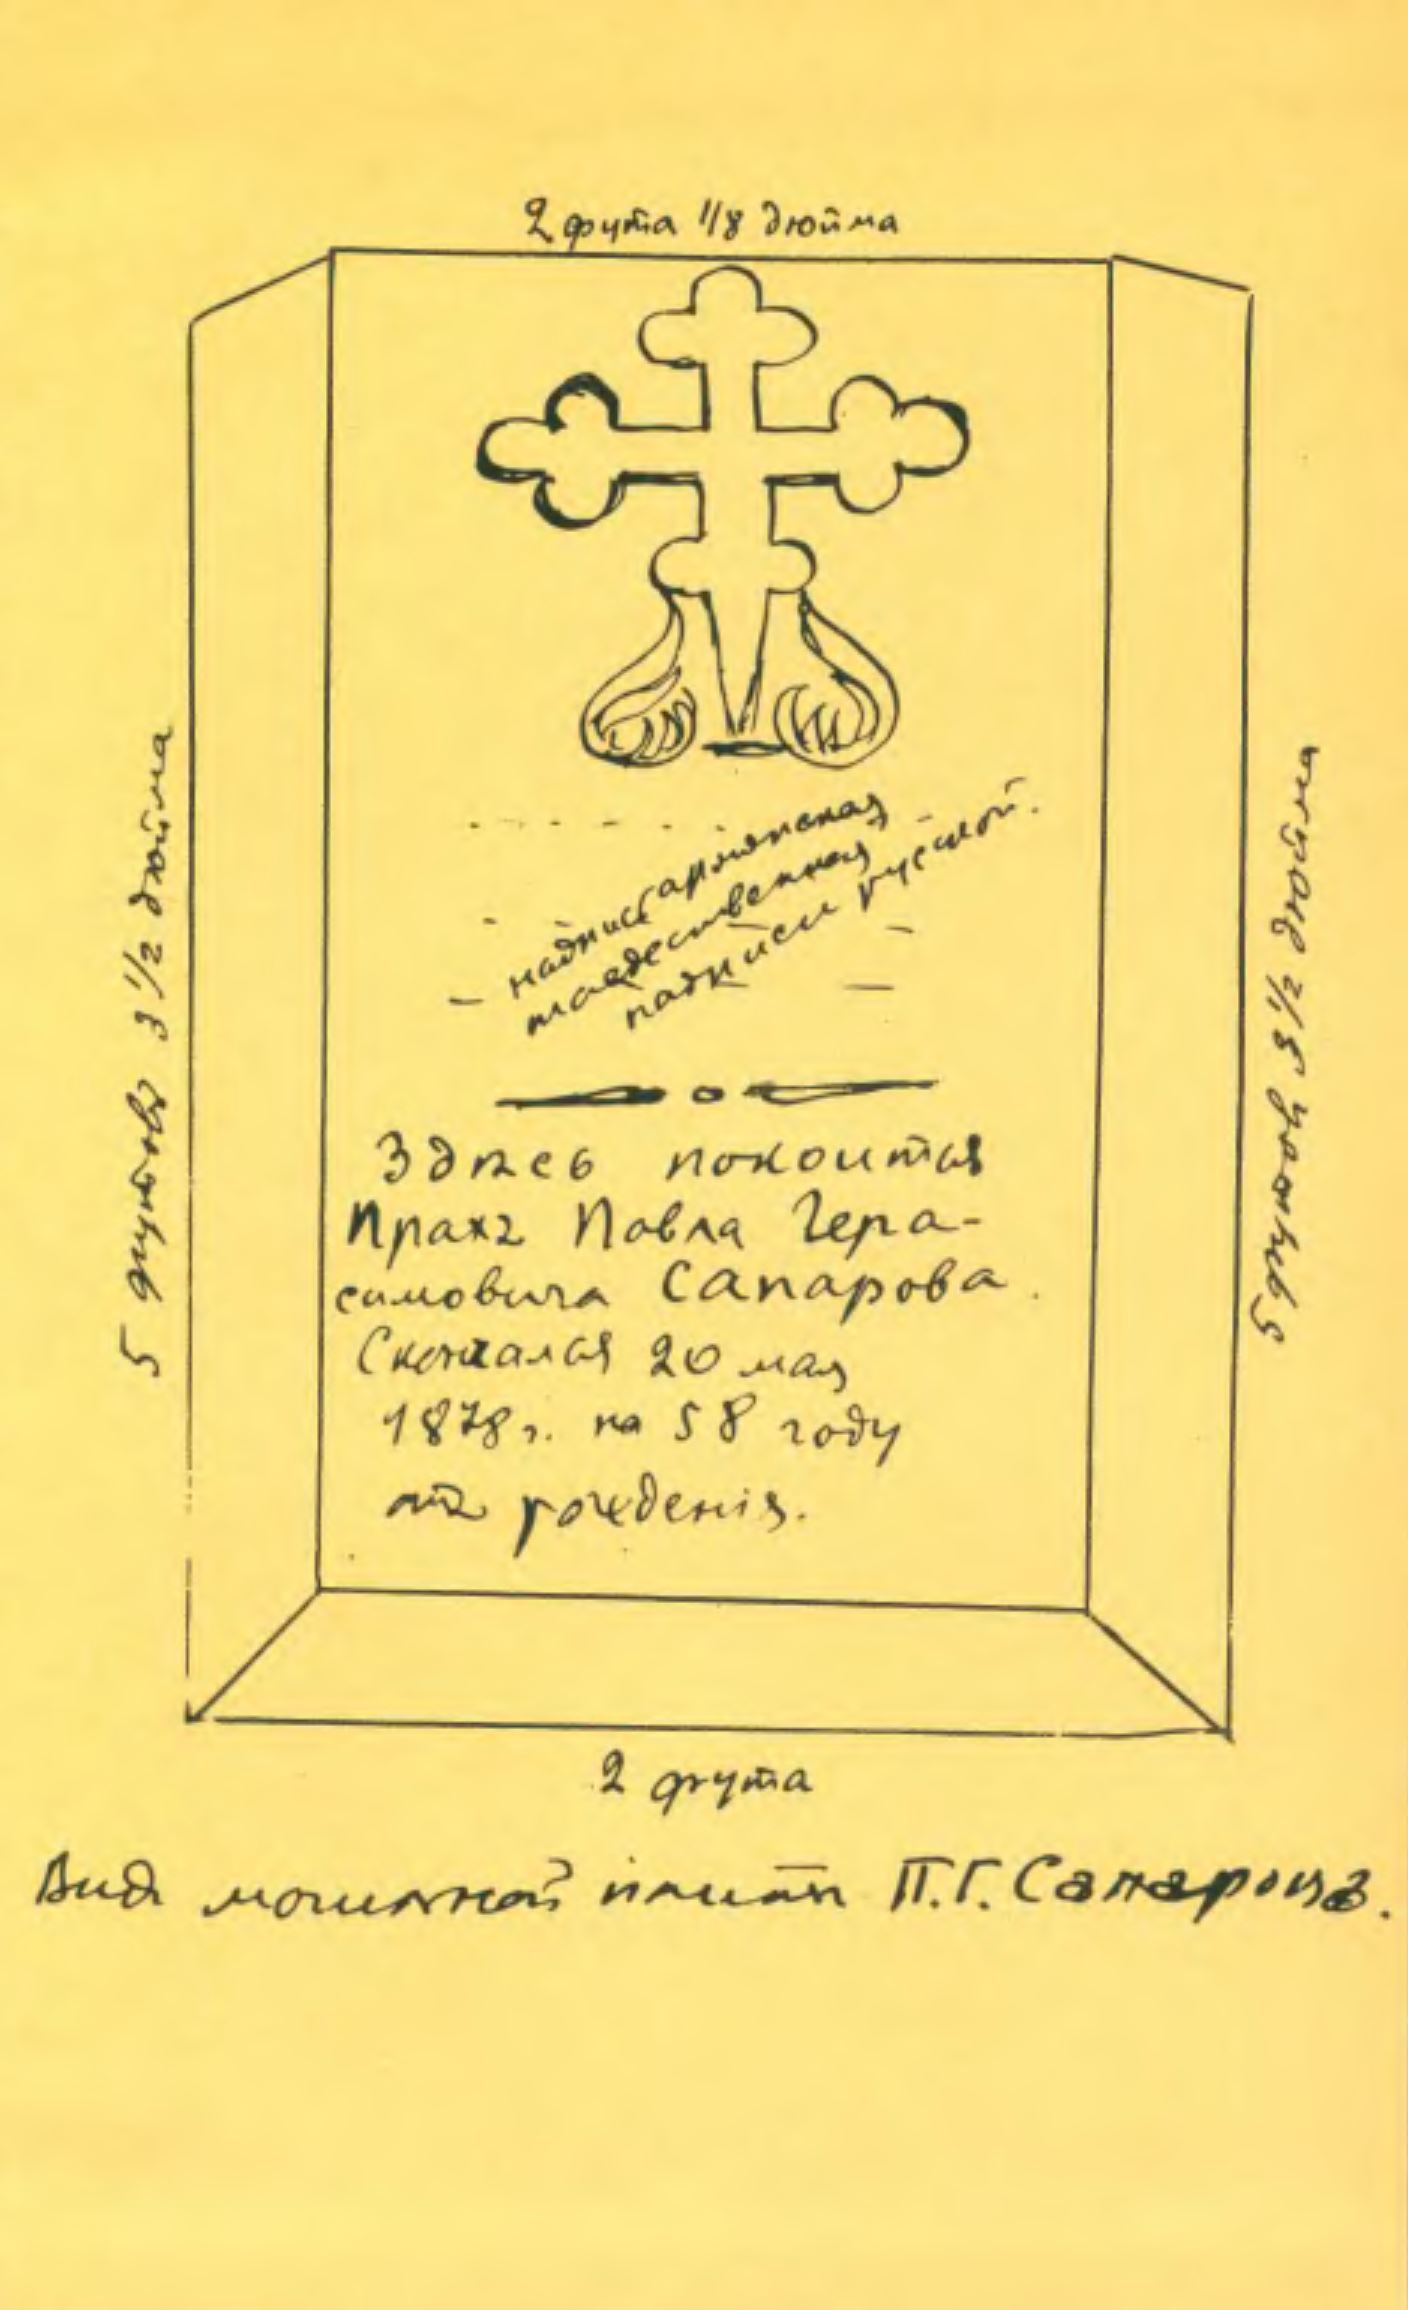 2 фута 1/8 дюйма
5 футовъ 3 1/2 дюйма
5 футовъ 3 1/2 дюйма
надпись армянская
тождественная
надписи русской.
Здѣсь покоится
Прахъ Павла Гера-
симовича Сапарова.
Скончался 20 мая
1878 г. на 58 году
отъ рожденія.
2 фута
Видъ могильной плиты П.Г. Сапарова.